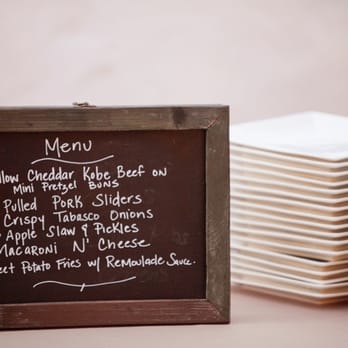 Menu
llow Cheddar Kobe Beef on
Mini Pretzel Buns
Pulled Pork Sliders
Crispy Tabasco Onions
Apple Slaw & Pickles
Macaroni N' Cheese
eet Potato Fries w/ Remoulade Sauce.